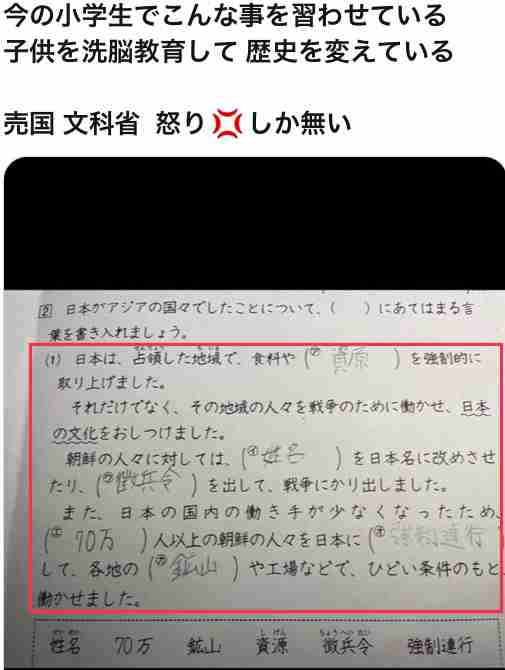 今の小学生でこんな事を習わせている
子供を洗脳教育して 歴史を変えている
売国 文科省 怒り💢しか無い
2 日本がアジアの国々でしたことについて、( )にあてはまる言
葉を書き入れましょう。
(1) 日本は、占領した地域で、食料や(㋐ 資原 )を強制的に
取り上げました。
それだけでなく、その地域の人々を戦争のために働かせ、日本
の文化をおしつけました。
朝鮮の人々に対しては、(㋑姓名 )を日本名に改めさせ
たり、(㋒徴兵令 )を出して、戦争にかり出しました。
また、日本の国内の働き手が少なくなったため、
(㋓ 70万 )人以上の朝鮮の人々を日本に(㋔強制連行 )
して、各地の(㋕鉱山 )や工場などで、ひどい条件のもと、
働かせました。
姓名 70万 鉱山 資源 徴兵令 強制連行